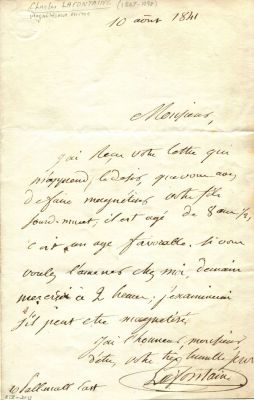 Charles LAFONTAINE
10 août 1841
Monsieur,
j'ai Reçu votre lettre qui
m'apprend le desir, que vous avez
de faire magnetiser votre fils
sourd-muet, il est agé de 8 ans 1/2,
c'est un age favorable. si vous
voulez l'amener chez moi, demain
mercredi a 2 heures, j'examinerai
s'il peut etre magnetisé.
j'ai l'honneur, monsieur
d'etre, votre très humble
Lafontaine
Pallmall East